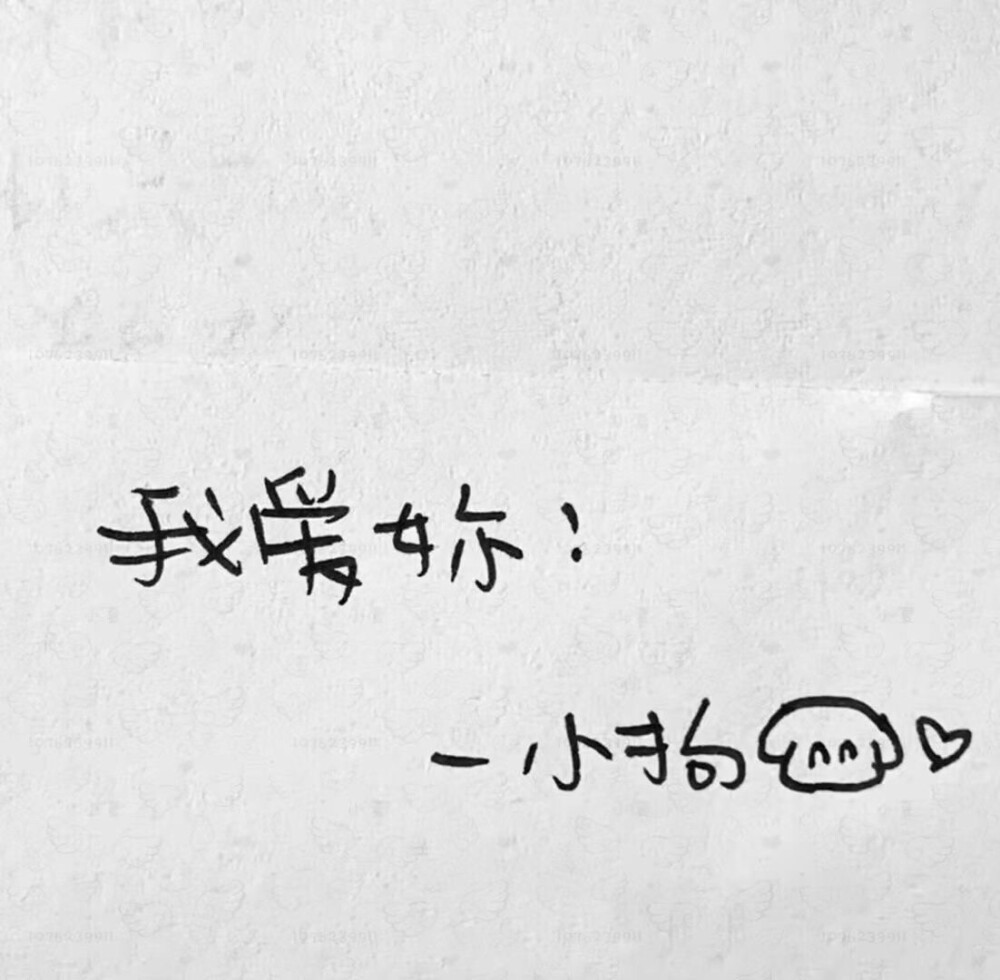 我愛妳：
—小狗